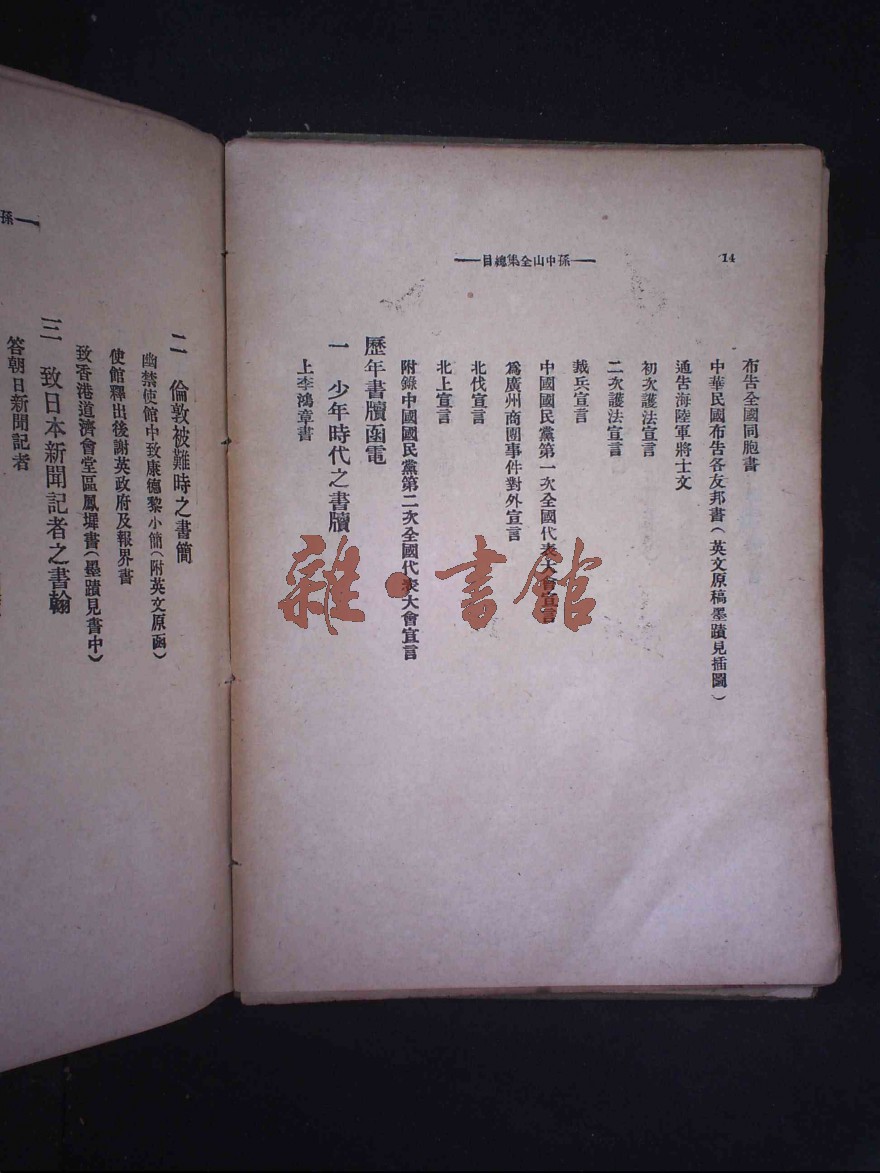 14
—孫中山全集總目—
布告全國同胞書
中華民國布告各友邦書(英文原稿墨蹟見插圖)
通告海陸軍將士文
初次護法宣言
二次護法宣言
裁兵宣言
中國國民黨第一次全國代表大會宣言
爲廣州商團事件對外宣言
北伐宣言
北上宣言
附錄中國國民黨第二次全國代表大會宣言
歷年書牘函電
一 少年時代之書牘
上李鴻章書
雜·書館
—孫
二 倫敦被難時之書簡
幽禁使館中致康德黎小簡(附英文原函)
使館釋出後謝英政府及報界書
致香港道濟會堂區鳳墀書(墨蹟見書中)
三 致日本新聞記者之書翰
答朝日新聞記者